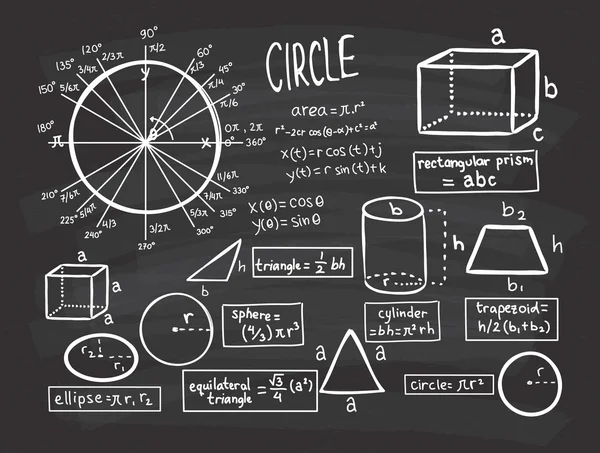 90°
120°
π/2
60°
135°
2/3π
π/3
45°
3/4π
π/4
150°
5/6π
y
30°
π/6
θ
180°
π
x
0π, 2π
0°
360°
210°
7/6π
11/6π
330°
225°
5/4π
7/4π
315°
240°
4/3
3/2π
5/3π
300°
270°
CIRCLE
area=π.r²
r²-2cr cos(θ-α)+c²=a²
x(t)=r cos(t)+j
y(t)=r sin(t)+k
x(θ)=cosθ
y(θ)=sinθ
a
b
c
rectangular prism
= abc
h
b
triangle= 1/2 bh
b
r
h
cylinder
=bh=π²rh
b₂
h
b₁
trapezoid=
h/2 (b₁+b₂)
a
a
a
r
sphere=
(4/3)πr³
r₂
r₁
ellipse=πr₁r₂
equilateral
triangle = √3/4 (a²)
a
a
a
circle= πr²
r